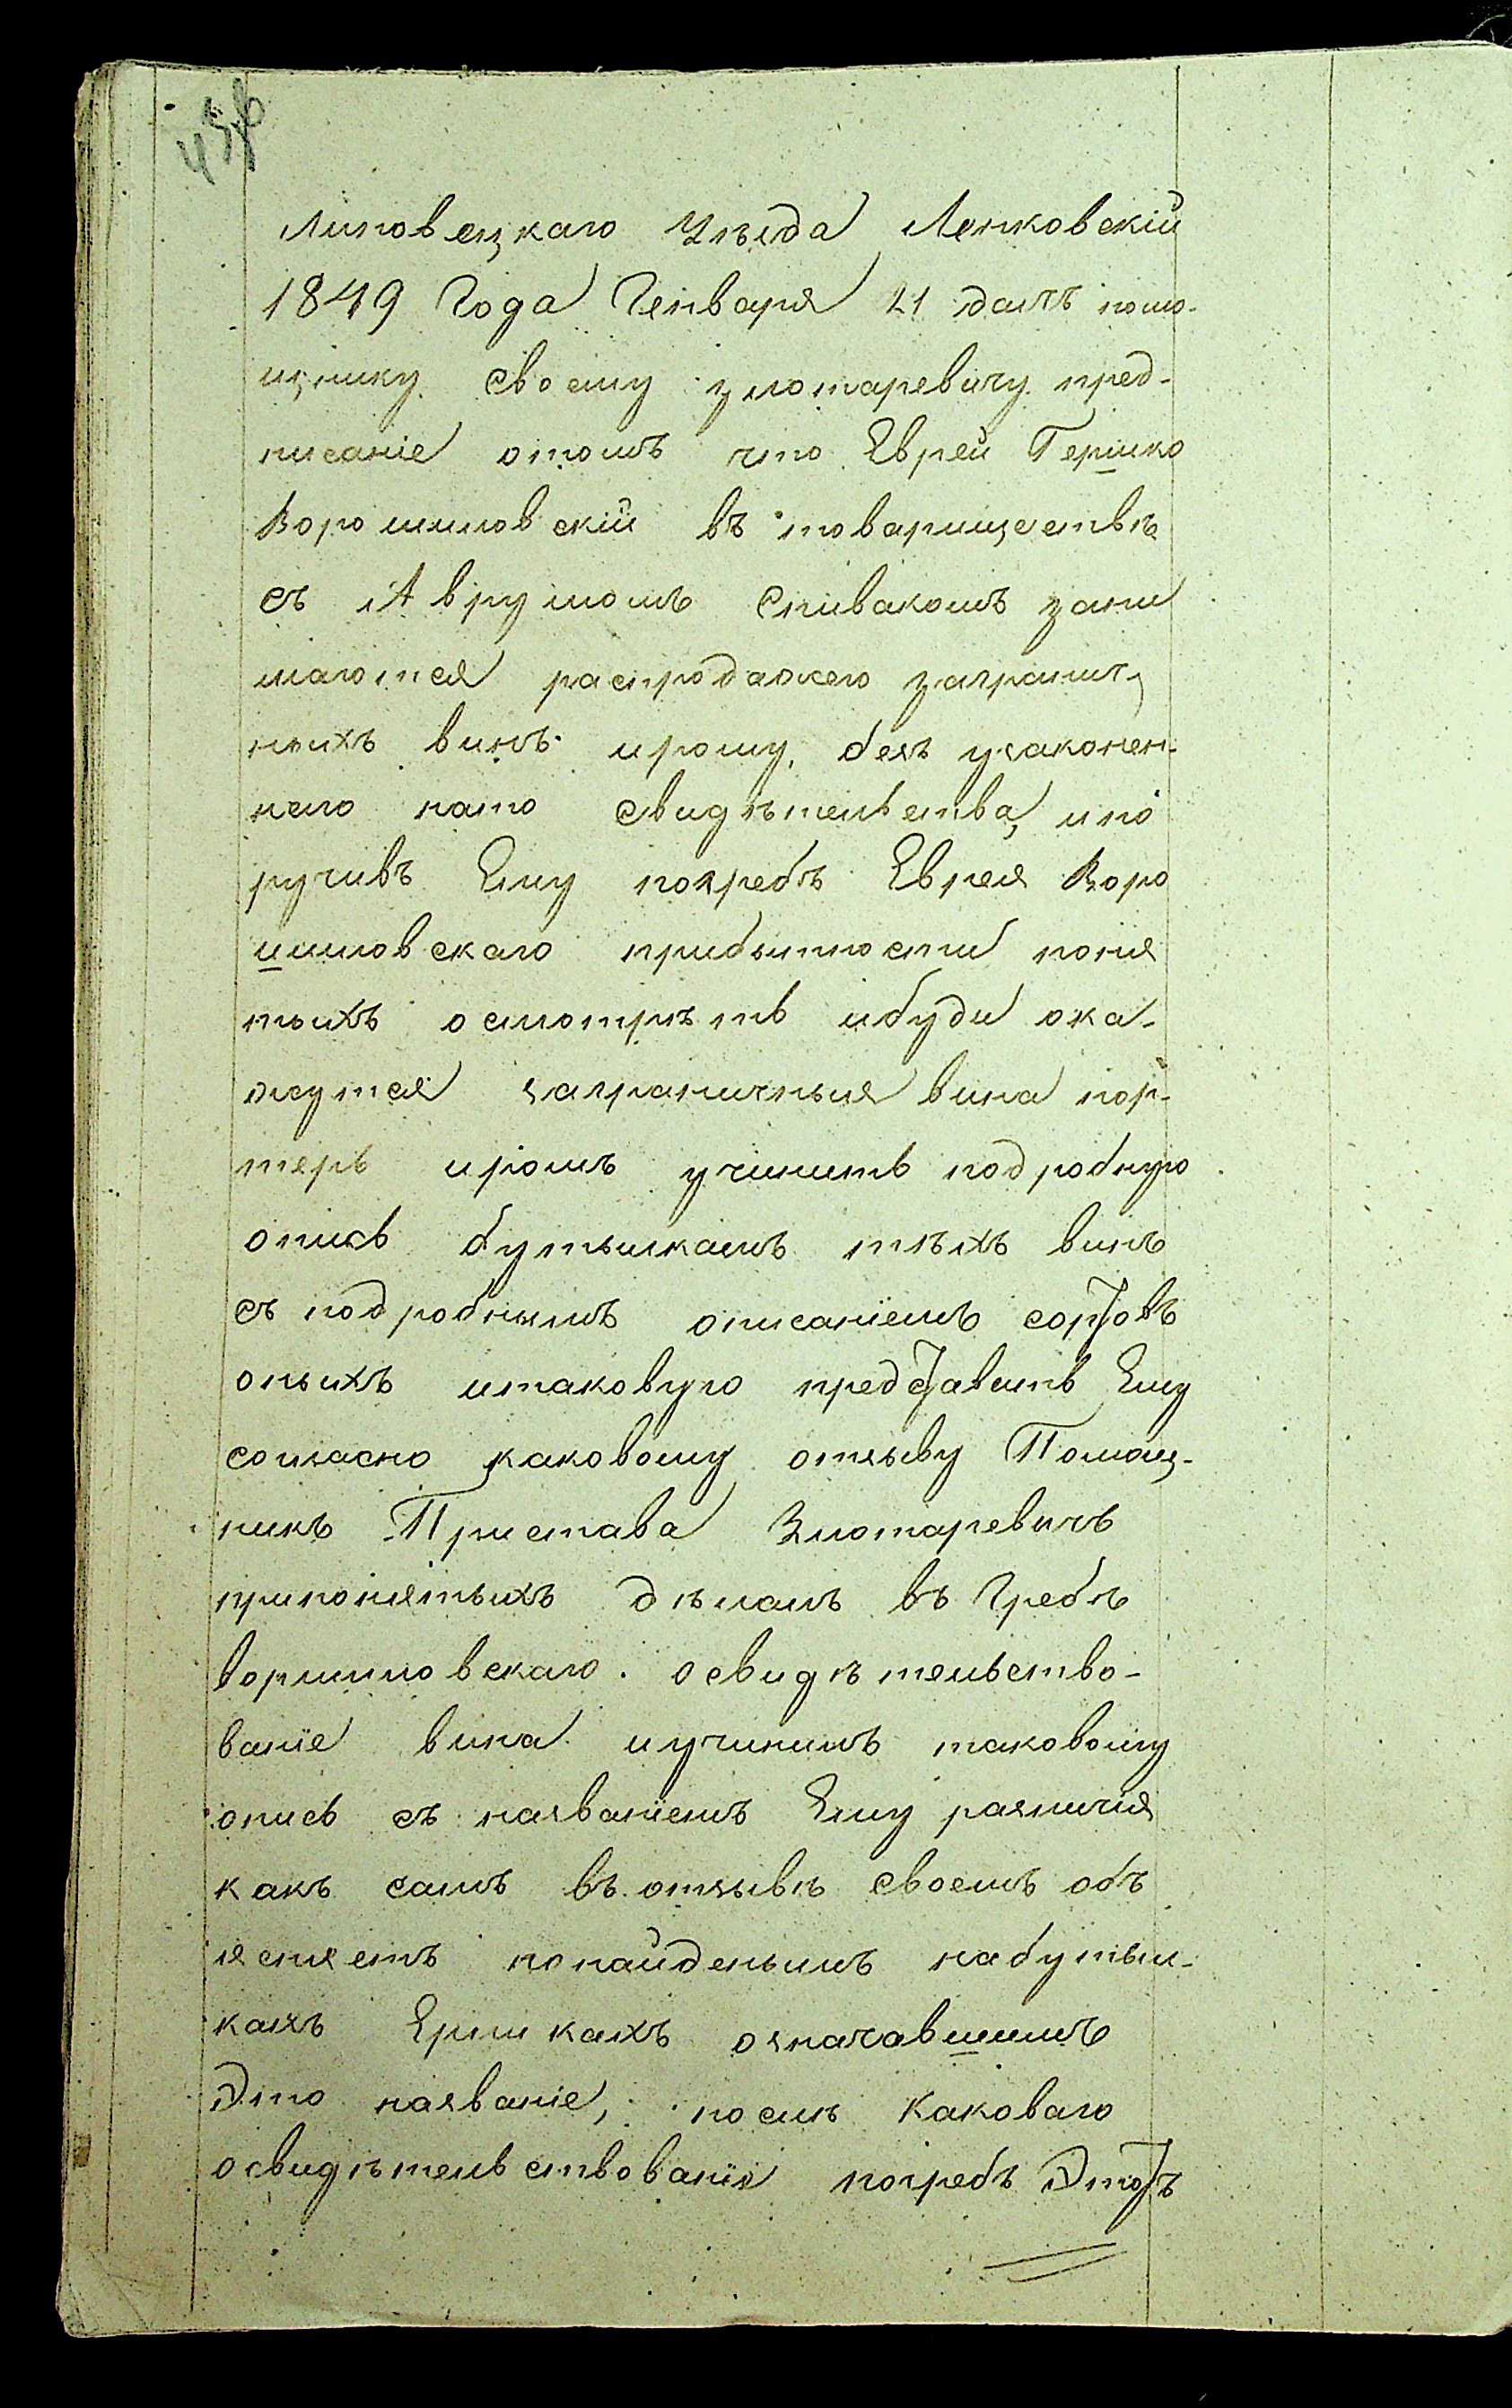 Липовецкаго Уѣзда Ленковскій
1849 Года Генваря 21 далъ помо-
щнику своему Злотаревичу пред-
писаніе отомъ что Еврей Гершко
Ворошиловскій въ товариществѣ
съ Аврумомъ Спивакомъ зани
маются распродажею заграничъ
ныхъ винъ ирому, безъ узаконен-
наго нато свидѣтельства, ипо
ручивъ Ему погребъ Еврея Воро
шиловскаго прибытности поня
тыхъ осмотрѣть ибуди ока-
жутся заграничныя вина пор-
теръ иромъ учинить подробную
опись бутылкамъ тѣхъ винъ
съ подробнымъ описаніемъ сортовъ
оныхъ итаковую представить Ему
согласно каковому отзыву Помощ-
никъ Пристава Злотаревичъ
припонятыхъ дѣлалъ въ Гребѣ
Воршиловскаго. освидѣтельство-
ваніе вина иучинилъ таковому
опись съ названіемъ Ему различія
какъ самъ въ отзывѣ своемъ объ
ясняетъ понайденымъ набутыл-
кахъ Ерликахъ означавшимъ
Это названіе, послѣ каковаго
освидѣтельствованія погребъ Этотъ